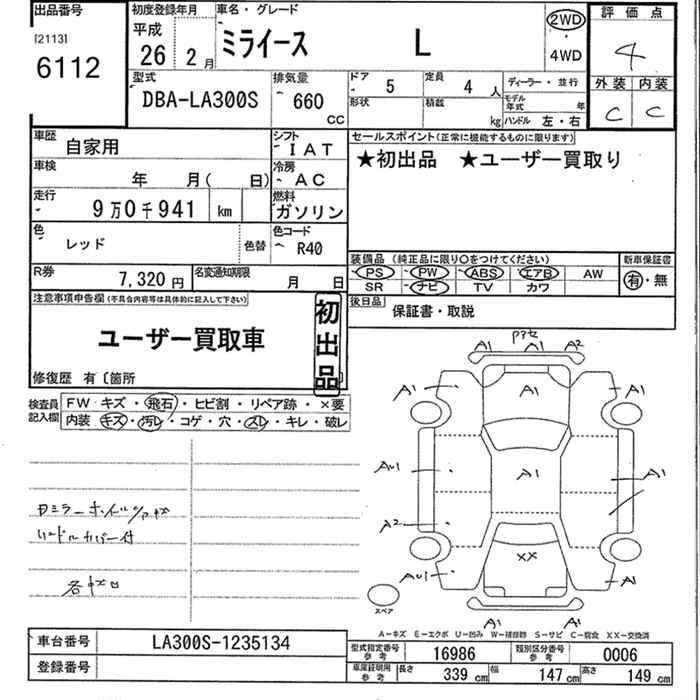 出品番号 初度登録年月 車名・グレード 評価点
[2113] 平成 2WD
6112 26年 2月 ミライース L 4WD 4
型式 排気量 ドア 定員 ディーラー・並行 外装 内装
DBA-LA300S 660 CC 5 4人 モデル年式 年 C C
形状 積載 kg ハンドル 左・右
車歴 自家用 シフト IAT セールスポイント(正常に機能するものに限ります)
車検 年 月( 日) 冷房 AC ★初出品 ★ユーザー買取り
走行 9万0千941 km 燃料 ガソリン
色 レッド 色替 色コード R40
装備品 (純正品に限り○をつけてください) 新車保証書
PS PW ABS エアB AW 有・無
R券 7,320円 名変通知期限 月 日 SR ナビ TV カワ
注意事項申告欄(不具合内容等は具体的に記入して下さい) 後日品 保証書・取説
ユーザー買取車 初出品
修復歴 有〔箇所
検査員記入欄 FW キズ・飛石・ヒビ割・リペア跡・×要
内装 キズ・汚レ・コゲ・穴・スレ・キレ・破レ
A1 A1 A2
A1 A1 A1
AU1 A1 A1
A2
XX
AU1 A1
スペア
A1 A1
A-キズ E-エクボ U-凹み W-補修跡 S-サビ C-腐食 XX-交換済
車台番号 LA300S-1235134 型式指定番号 参考 16986 類別区分番号 参考 0006
登録番号 車庫証明用 参考 長さ 339 cm 幅 147 cm 高さ 149 cm